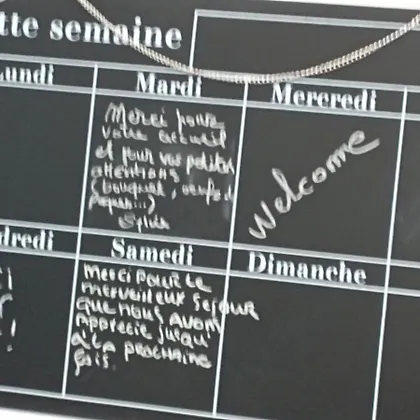 tte semaine
undi
Mardi
Mercredi
Merci pour
votre accueil
et pour vos petites
attentions
(bouquet, oeufs de
paques...)
Sylvie
Welcome
dredi
Samedi
Dimanche
Merci pour le
merveilleux sejour
que nous avons
apprecie jusqu'
a la prochaine
fois.